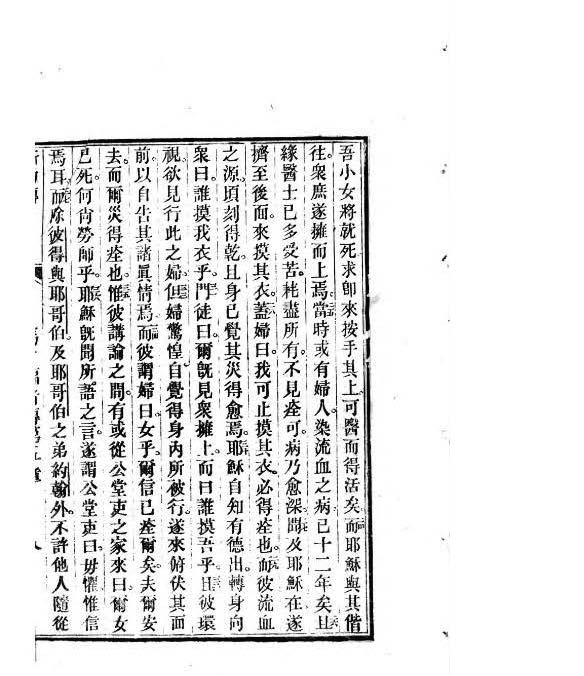 吾小女將就死求卽來按手其上可醫而得活矣而耶穌與其偕
往衆庶遂擁而上焉當時或有婦人染流血之病已十二年矣且
緣醫士已多受苦耗盡所有不見痊可病乃愈深聞及耶穌在遂
擠至後面來摸其衣蓋婦曰我可止摸其衣必得痊也而彼流血
之源頃刻得乾且身已覺其災得愈焉耶穌自知有德出轉身向
衆曰誰摸我衣乎門徒曰爾旣見衆擁上而曰誰摸吾乎且彼環
視欲見行此之婦但婦驚惶自覺得身內所被行遂來俯伏其面
前以自告其諸眞情焉而彼謂婦曰女乎爾信已痊爾矣夫爾安
去而爾災得痊也惟彼講論之間有或從公堂吏之家來曰爾女
已死何尙勞師乎耶穌旣聞所語之言遂謂公堂吏曰毋懼惟信
焉耳而除彼得與耶哥伯及耶哥伯之弟約翰外不許他人隨從
八